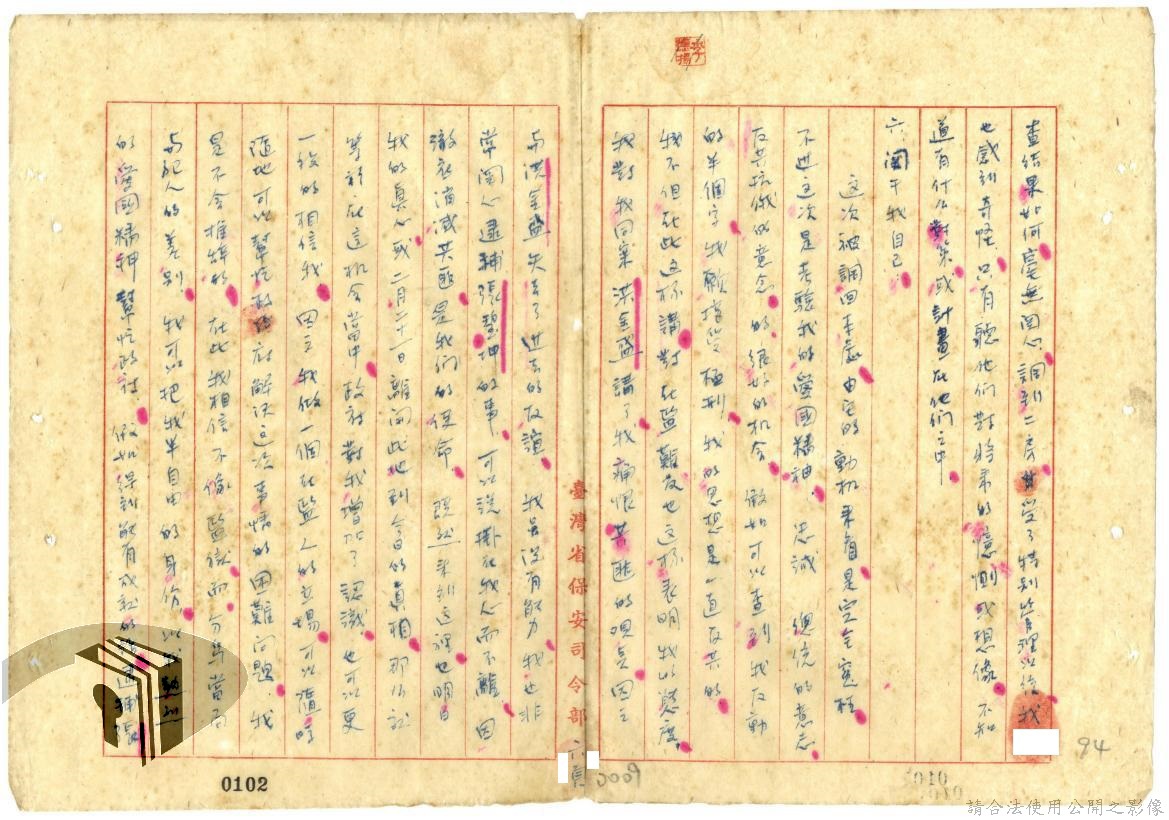 查結果如何毫無関心調到二房 受了特別管理以後我
也感到奇怪只有聽他們對將來的憶測或想像不知
道有什么對策或計畫在他們之中
六、関于我自己
這次被調回本處由它的動机來看是完全寬枉
不过这次是考驗我的愛國精神、忠誠 總統的意志
反共抗俄的意念的很好的机會 假如可以查到我反動
的半個字我願接受極刑 我的思想是一直反共的
我不但在此这樣講對在監難友也这樣表明我的態度
我對我同案洪金盛講了我痛恨共匪的 因之
與洪金盛失去了过去的友誼 我虽没有能力我也非
常関心逮捕張碧坤的事、可以説掛在我心而不離 因
徹底消滅共匪是我們的使命 既然來到這裡也明白
我的真心或二月二十一日離開此地到今日的真相那么
等於在這机會當中政府對我增加了認識也可以更
一段的相信我 因之我做一個在監人的立場可以隨時
隨地可以幫忙政府解決这次事情的困難問題 我
是不會推辞的 在此我相信不像監獄而 當局
與犯人的差別 我可以把我半自由的身份
的愛國精神幫忙政府 假如得到能有成 逮捕張
臺灣省保安司令部
六頁
94
0102
請合法使用公開之影像